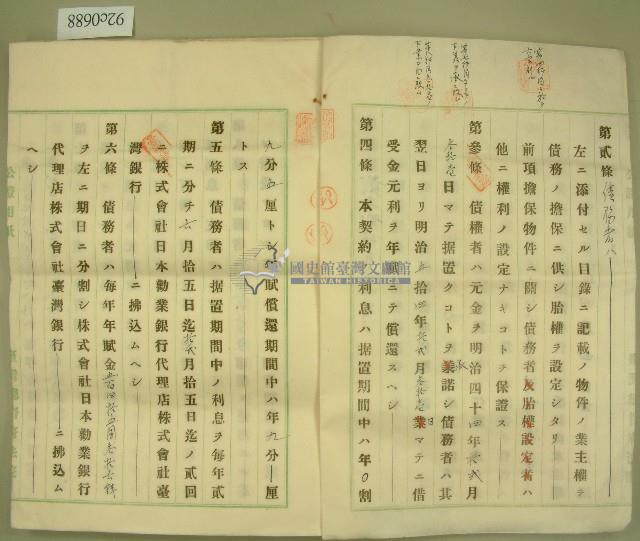 92c0688
第貳條 債務者ハ
左ニ添付セル目錄ニ記載ノ物件ノ業主權ヲ
債務ノ擔保ニ供シ胎權ヲ設定シタリ
前項擔保物件ニ關シ債務者及胎權設定者ハ
他ニ權利ノ設定ナキコトヲ保證ス
第參條 債權者ハ元金ヲ明治四十四年拾貳月
參拾壱日マテ据置クコトヲ承諾シ債務者ハ其
翌日ヨリ明治五拾四年拾貳月參拾壱日マテニ借
受金元利ヲ年賦ニテ償還スヘシ
第四條 本契約ノ利息ハ据置期間中ハ年0割
九分五厘トシ年賦償還期間中ハ年九分厘
トス
第五條 債務者ハ据置期間中ノ利息ヲ每年貳
期ニ分チ六月拾五日迄拾貳月拾五日迄ノ二回
ニ株式會社日本勸業銀行代理店株式會社臺
灣銀行ニ拂込ムヘシ
第六條 債務者ハ每年年賦金
ヲ左ニ期日ニ分割シ株式會社日本勸業銀行
代理店株式會社臺灣銀行ニ拂込ム
ヘシ
國史館臺灣文獻館
TAIWAN HISTORICA